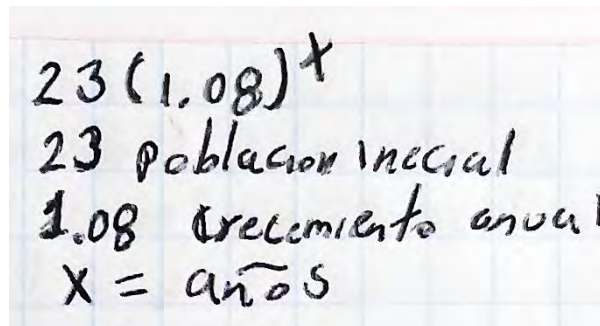 23(1.08)^x
23 poblacion inecial
1.08 crecemiento anual
x = años